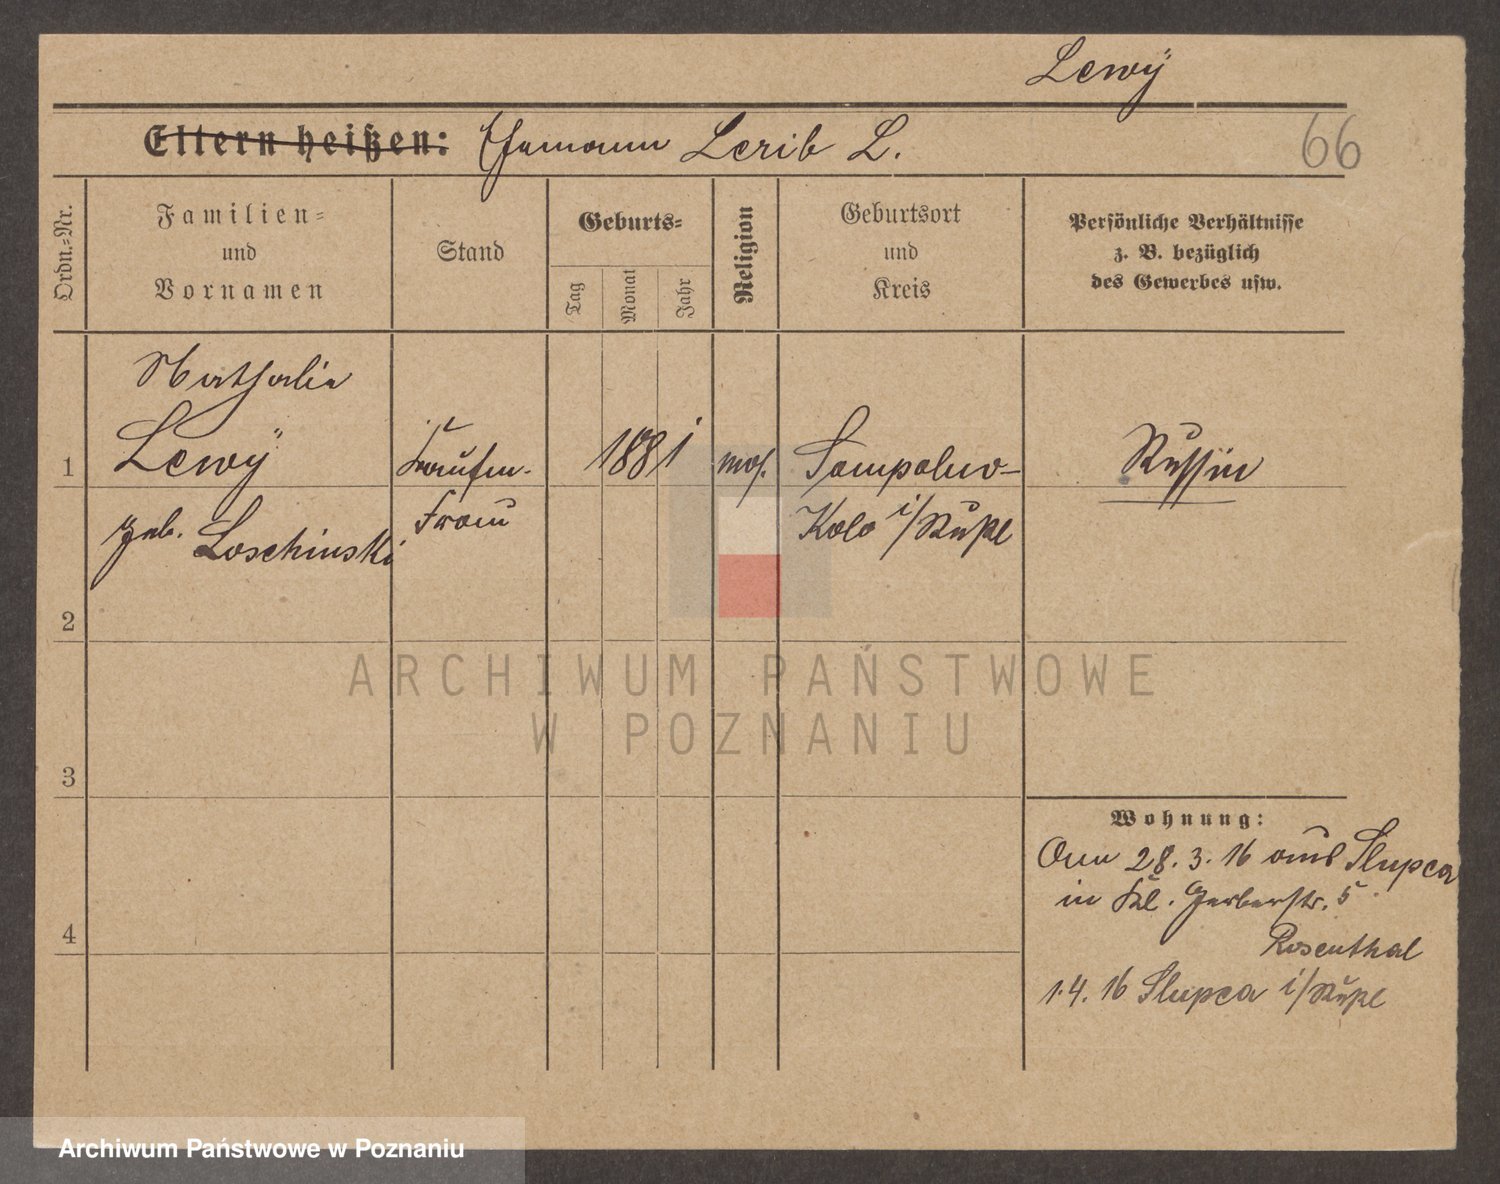 Lewÿ
Eltern heißen: Ehemann Lerib L.
66
Ordn.=Nr.
Familien=
und
Vornamen
Stand
Geburts=
Tag
Monat
Jahr
Religion
Geburtsort
und
Kreis
Persönliche Verhältnisse
z. B. bezüglich
des Gewerbes usw.
Nathalie
1 Lewÿ Kaufm. 1881 mos. Sompolno- Russin
geb. Loschinski Frau Kolo i/Rußl
2
3
4
ARCHIWUM PAŃSTWOWE
W POZNANIU
Wohnung:
28. 3. 16 aus Slupca
in Kl. Gerberstr. 5
Rosenthal
1.4. 16 Slupca i/Rußl
Archiwum Państwowe w Poznaniu